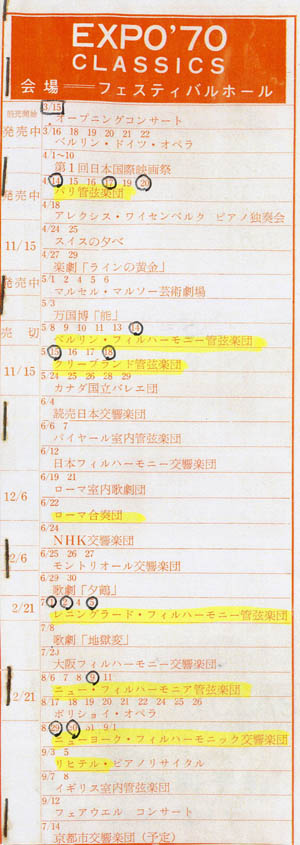 EXPO'70
CLASSICS
会場──フェスティバルホール
前売開始
3/15
オープニングコンサート
発売中
3/16 18 19 20 21 22
ベルリン・ドイツ・オペラ
4/1〜10
第1回日本国際映画祭
4/14 15 16 17 19 20
発売中
パリ管弦楽団
4/18
アレクシス・ワイセンベルク ピアノ独奏会
4/24 25
11/15
スイスの夕べ
4/27 29
楽劇「ラインの黄金」
発売中
5/1 2 4 5 6
マルセル・マルソー芸術劇場
5/3
万国博「能」
売切
5/8 9 10 11 13 14
ベルリン・フィルハーモニー管弦楽団
5/15 16 17 18
11/15
クリーブランド管弦楽団
5/24 25 26 28 29
カナダ国立バレエ団
6/4
読売日本交響楽団
6/6 7
パイヤール室内管弦楽団
6/12
日本フィルハーモニー交響楽団
6/19 21
12/6
ローマ室内歌劇団
6/22
ローマ合奏団
6/24
NHK交響楽団
6/25 26 27
2/6
モントリオール交響楽団
6/29 30
歌劇「夕鶴」
2/21
7/1 2 4 5
レニングラード・フィルハーモニー管弦楽団
7/8
歌劇「地獄変」
大阪フィルハーモニー交響楽団
8/6 7 8 9 11
ニュー・フィルハーモニア管弦楽団
2/21
8/17 18 19 20 21 22 24 25 26
ボリショイ・オペラ
8/29 30 31 9/1
ニューヨーク・フィルハーモニック交響楽団
9/3 5
リヒテル・ピアノリサイタル
9/7 8
イギリス室内管弦楽団
9/12
フェアウエル コンサート
7/14
京都市交響楽団(予定)